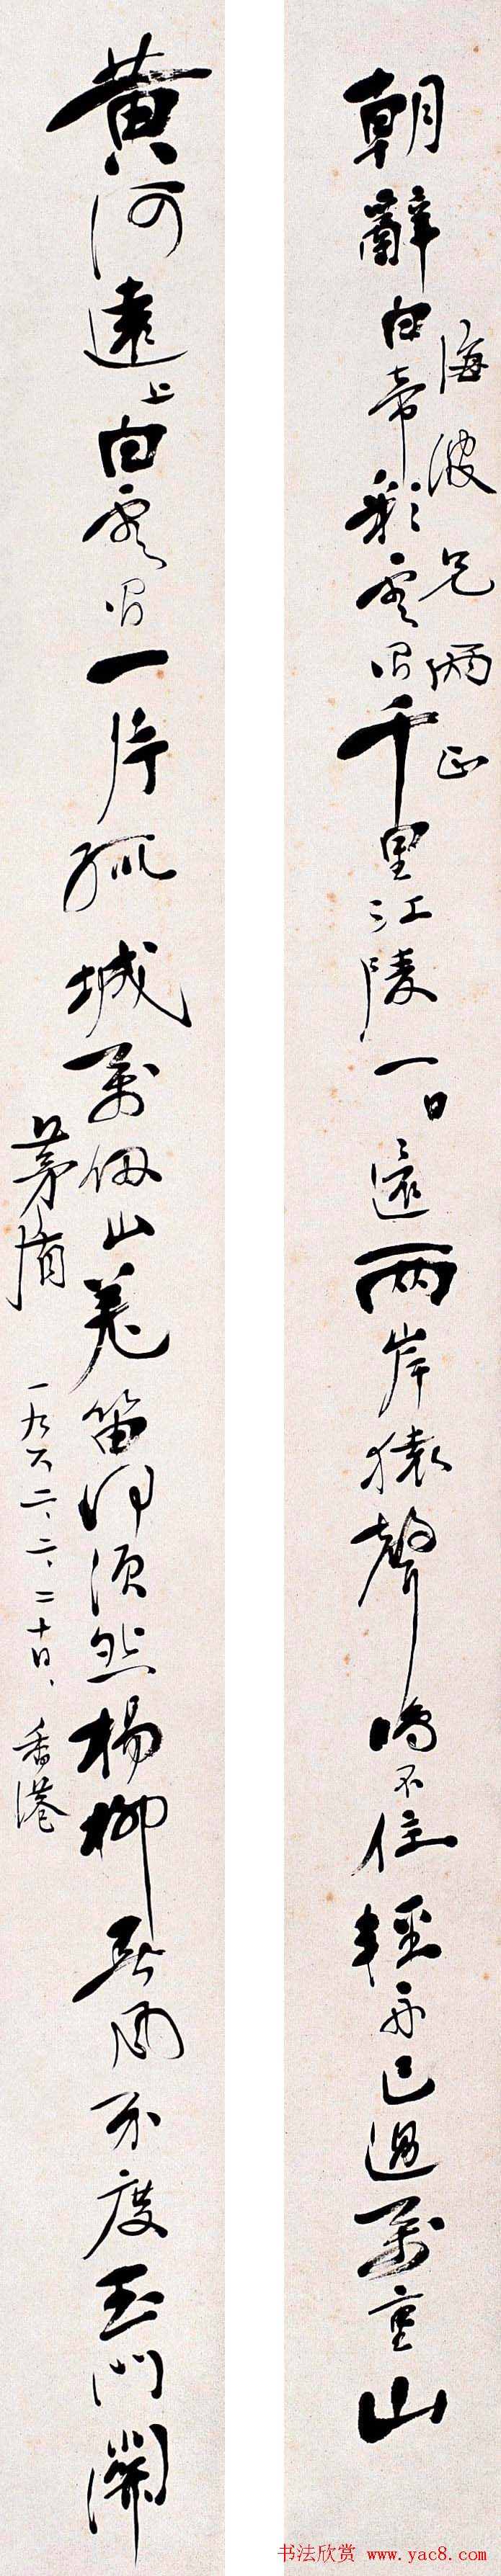 朝辭白帝彩雲間千里江陵一日還兩岸猿聲鳴不住輕舟已過萬重山
海波兄正
黃河遠上白雲間一片孤城萬仞山羌笛何須怨楊柳春風不度玉門關
茅盾
一九六二、二、二十日、香港
书法欣赏 www.yac8.com